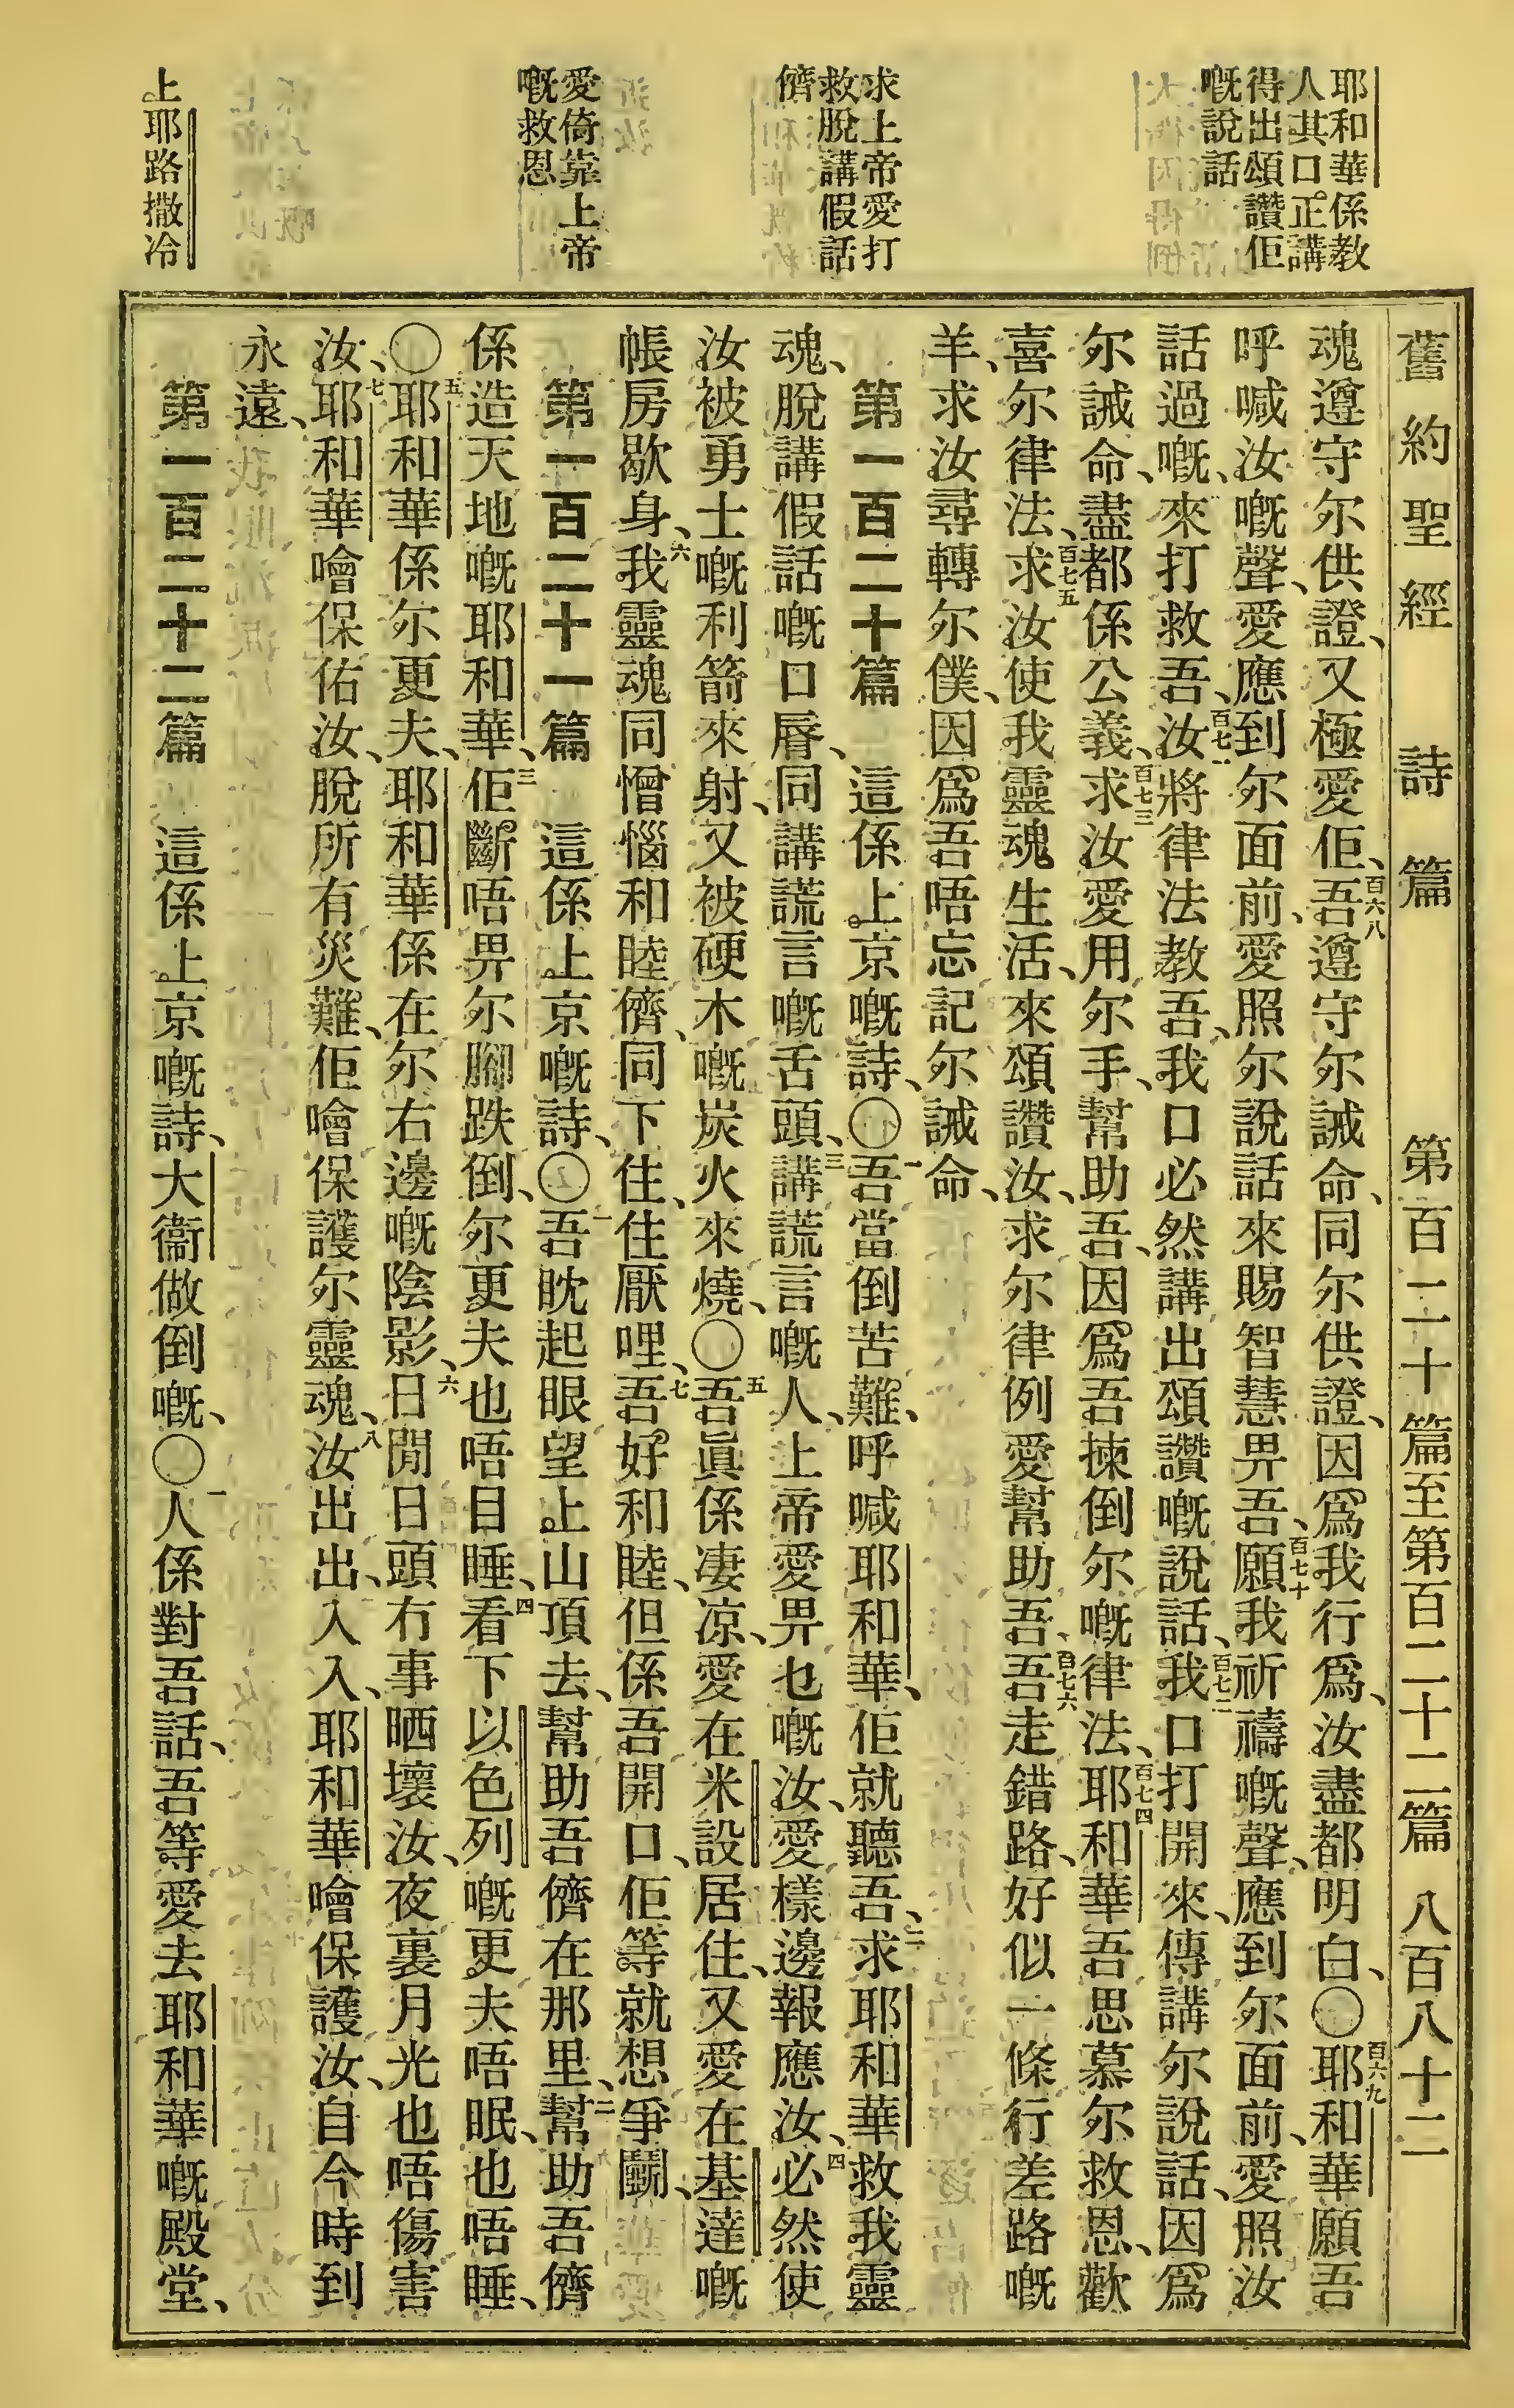 舊約聖經 詩篇 第百二十篇至第百二十二篇 八百八十二
耶和華係教
人其口正講
得出頌讚佢
嘅說話
求上帝愛打
救脫講假話
儕
愛倚靠上帝
嘅救恩
上耶路撒冷
魂遵守尔供證、又極愛佢、百六八吾遵守尔誡命、同尔供證、因爲我行爲、汝盡都明白、〇百六九耶和華願吾
呼喊汝嘅聲、愛應到尔面前、愛照尔說話來賜智慧畀吾、百七十願我祈禱嘅聲、應到尔面前、愛照汝
話過嘅、來打救吾、百七一汝將律法教吾、我口必然講出頌讚嘅說話、百七二我口打開來、傳講尔說話、因爲
尔誡命、盡都係公義、百七三求汝愛用尔手、幫助吾、因爲吾揀倒尔嘅律法、百七四耶和華吾思慕尔救恩、歡
喜尔律法、百七五求汝使我靈魂生活、來頌讚汝、求尔律例愛幫助吾、百七六吾走錯路、好似一條行差路嘅
羊、求汝尋轉尔僕、因爲吾唔忘記尔誡命、
第一百二十篇 這係上京嘅詩、〇一吾當倒苦難、呼喊耶和華、佢就聽吾、二求耶和華救我靈
魂、脫講假話嘅口脣、同講謊言嘅舌頭、三講謊言嘅人、上帝愛畀乜嘅汝、愛樣邊報應汝、四必然使
汝被勇士嘅利箭來射、又被硬木嘅炭火來燒、〇五吾眞係凄凉、愛在米設居住、又愛在基達嘅
帳房歇身、六我靈魂同憎惱和睦儕、同下住、住厭哩、七吾好和睦、但係吾開口、佢等就想爭鬭、
第一百二十一篇 這係上京嘅詩、〇一吾眈起眼望上山頂去、幫助吾儕在那里、二幫助吾儕
係造天地嘅耶和華、三佢斷唔畀尔腳跌倒、尔更夫也唔目睡、四看下以色列嘅更夫唔眠、也唔睡、
〇五耶和華係尔更夫、耶和華係在尔右邊嘅陰影、六日閒日頭冇事晒壞汝、夜裏月光也唔傷害
汝、七耶和華噲保佑汝、脫所有災難、佢噲保護尔靈魂、八汝出出、入入、耶和華噲保護汝、自今時到
永遠、
第一百二十二篇 這係上京嘅詩、大衞做倒嘅、〇一人係對吾話、吾等愛去耶和華嘅殿堂、